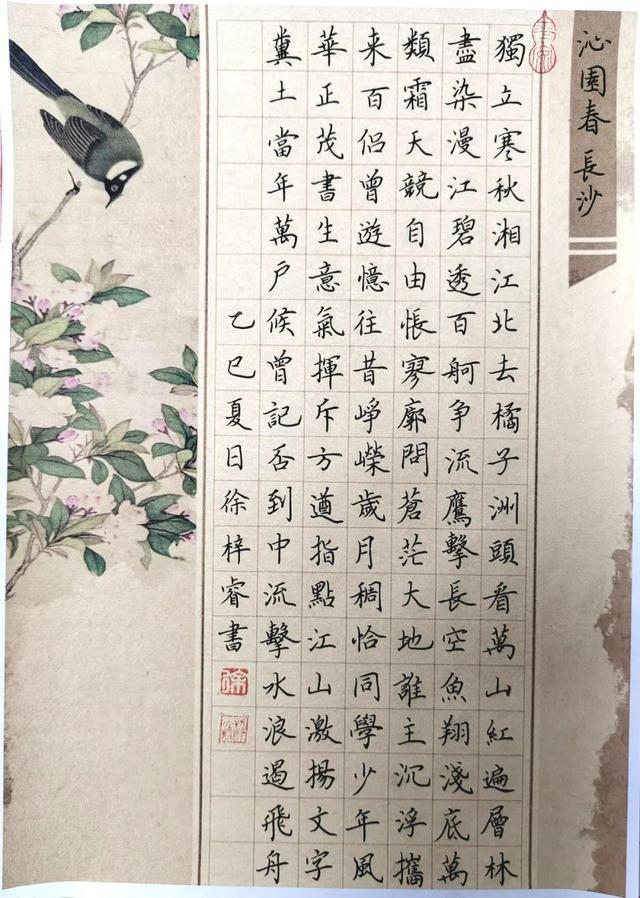 沁園春 長沙
獨立寒秋湘江北去橘子洲頭看萬山紅遍層林
盡染漫江碧透百舸争流鷹擊長空魚翔淺底萬
類霜天競自由悵寥廓問蒼茫大地誰主沉浮攜
来百侣曾遊憶往昔崢嶸歲月稠恰同學少年風
華正茂書生意氣揮斥方遒指點江山激揚文字
糞土當年萬户候曾記否到中流擊水浪遏飛舟
乙巳夏日徐梓睿書
徐